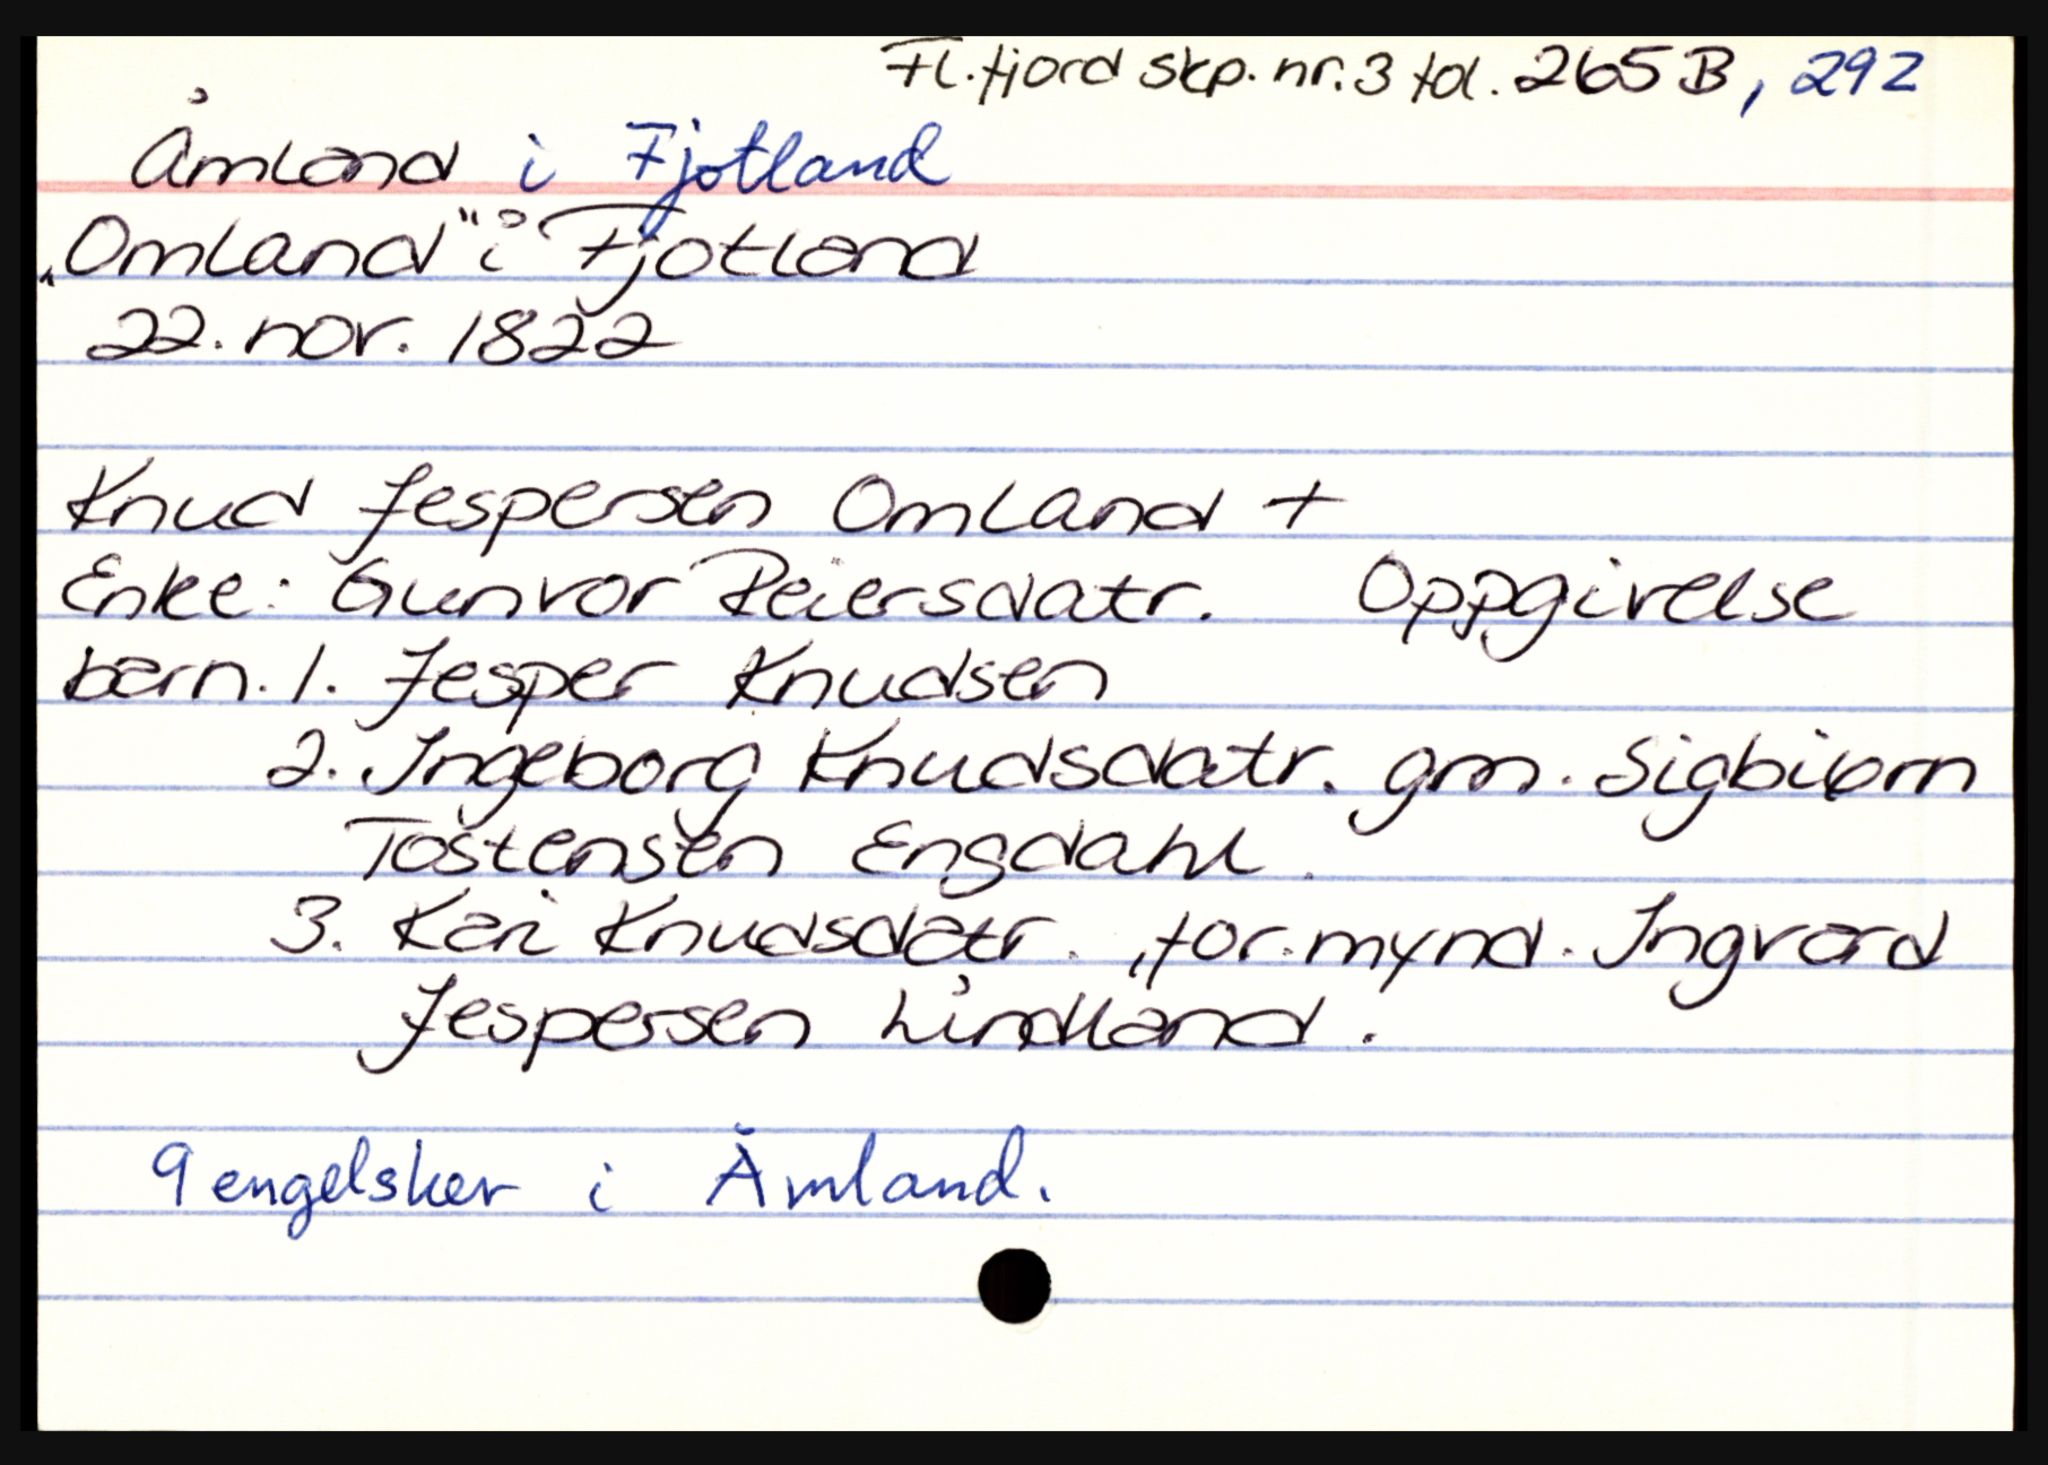 Fl.fjord skp. nr. 3 fol. 265 B, 292
Åmland i Fjotland
"Omland" i Fjotland
22. nov. 1822
Knud Jespersen Omland +
Enke: Gunvor Reiersdatr. Oppgivelse
barn. 1. Jesper Knudsen
2. Ingeborg Knudsdatr. gm. Sigbiørn
Tostensen Engdahl.
3. Kari Knudsdatr., for.mynd. Ingvard
Jespersen Lindland.
9 engelsker i Åmland.